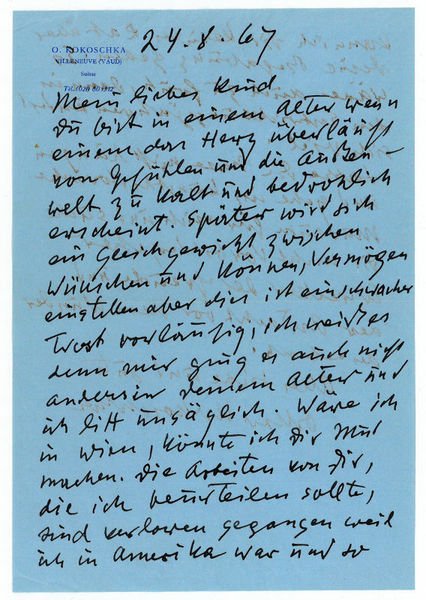 24.8.67
O. KOKOSCHKA
VILLENEUVE (VAUD)
Suisse
Mein liebes Kind.
Du bist in einem Alter wenn
einem das Herz überläuft
von Gefühlen und die Außen-
welt zu kalt und bedrohlich
erscheint. Später wird sich
ein Gleichgewicht zwischen
Wünschen und Können, Vermögen
einstellen aber dies ist ein schwacher
Trost vorläufig, ich weiß es
denn mir ging es auch nicht
anders in deinem Alter und
ich litt unsäglich. Wäre ich
in Wien, könnte ich dir Mut
machen. Die Arbeiten von Dir,
die ich beurteilen sollte,
sind verloren gegangen weil
ich in Amerika war und so